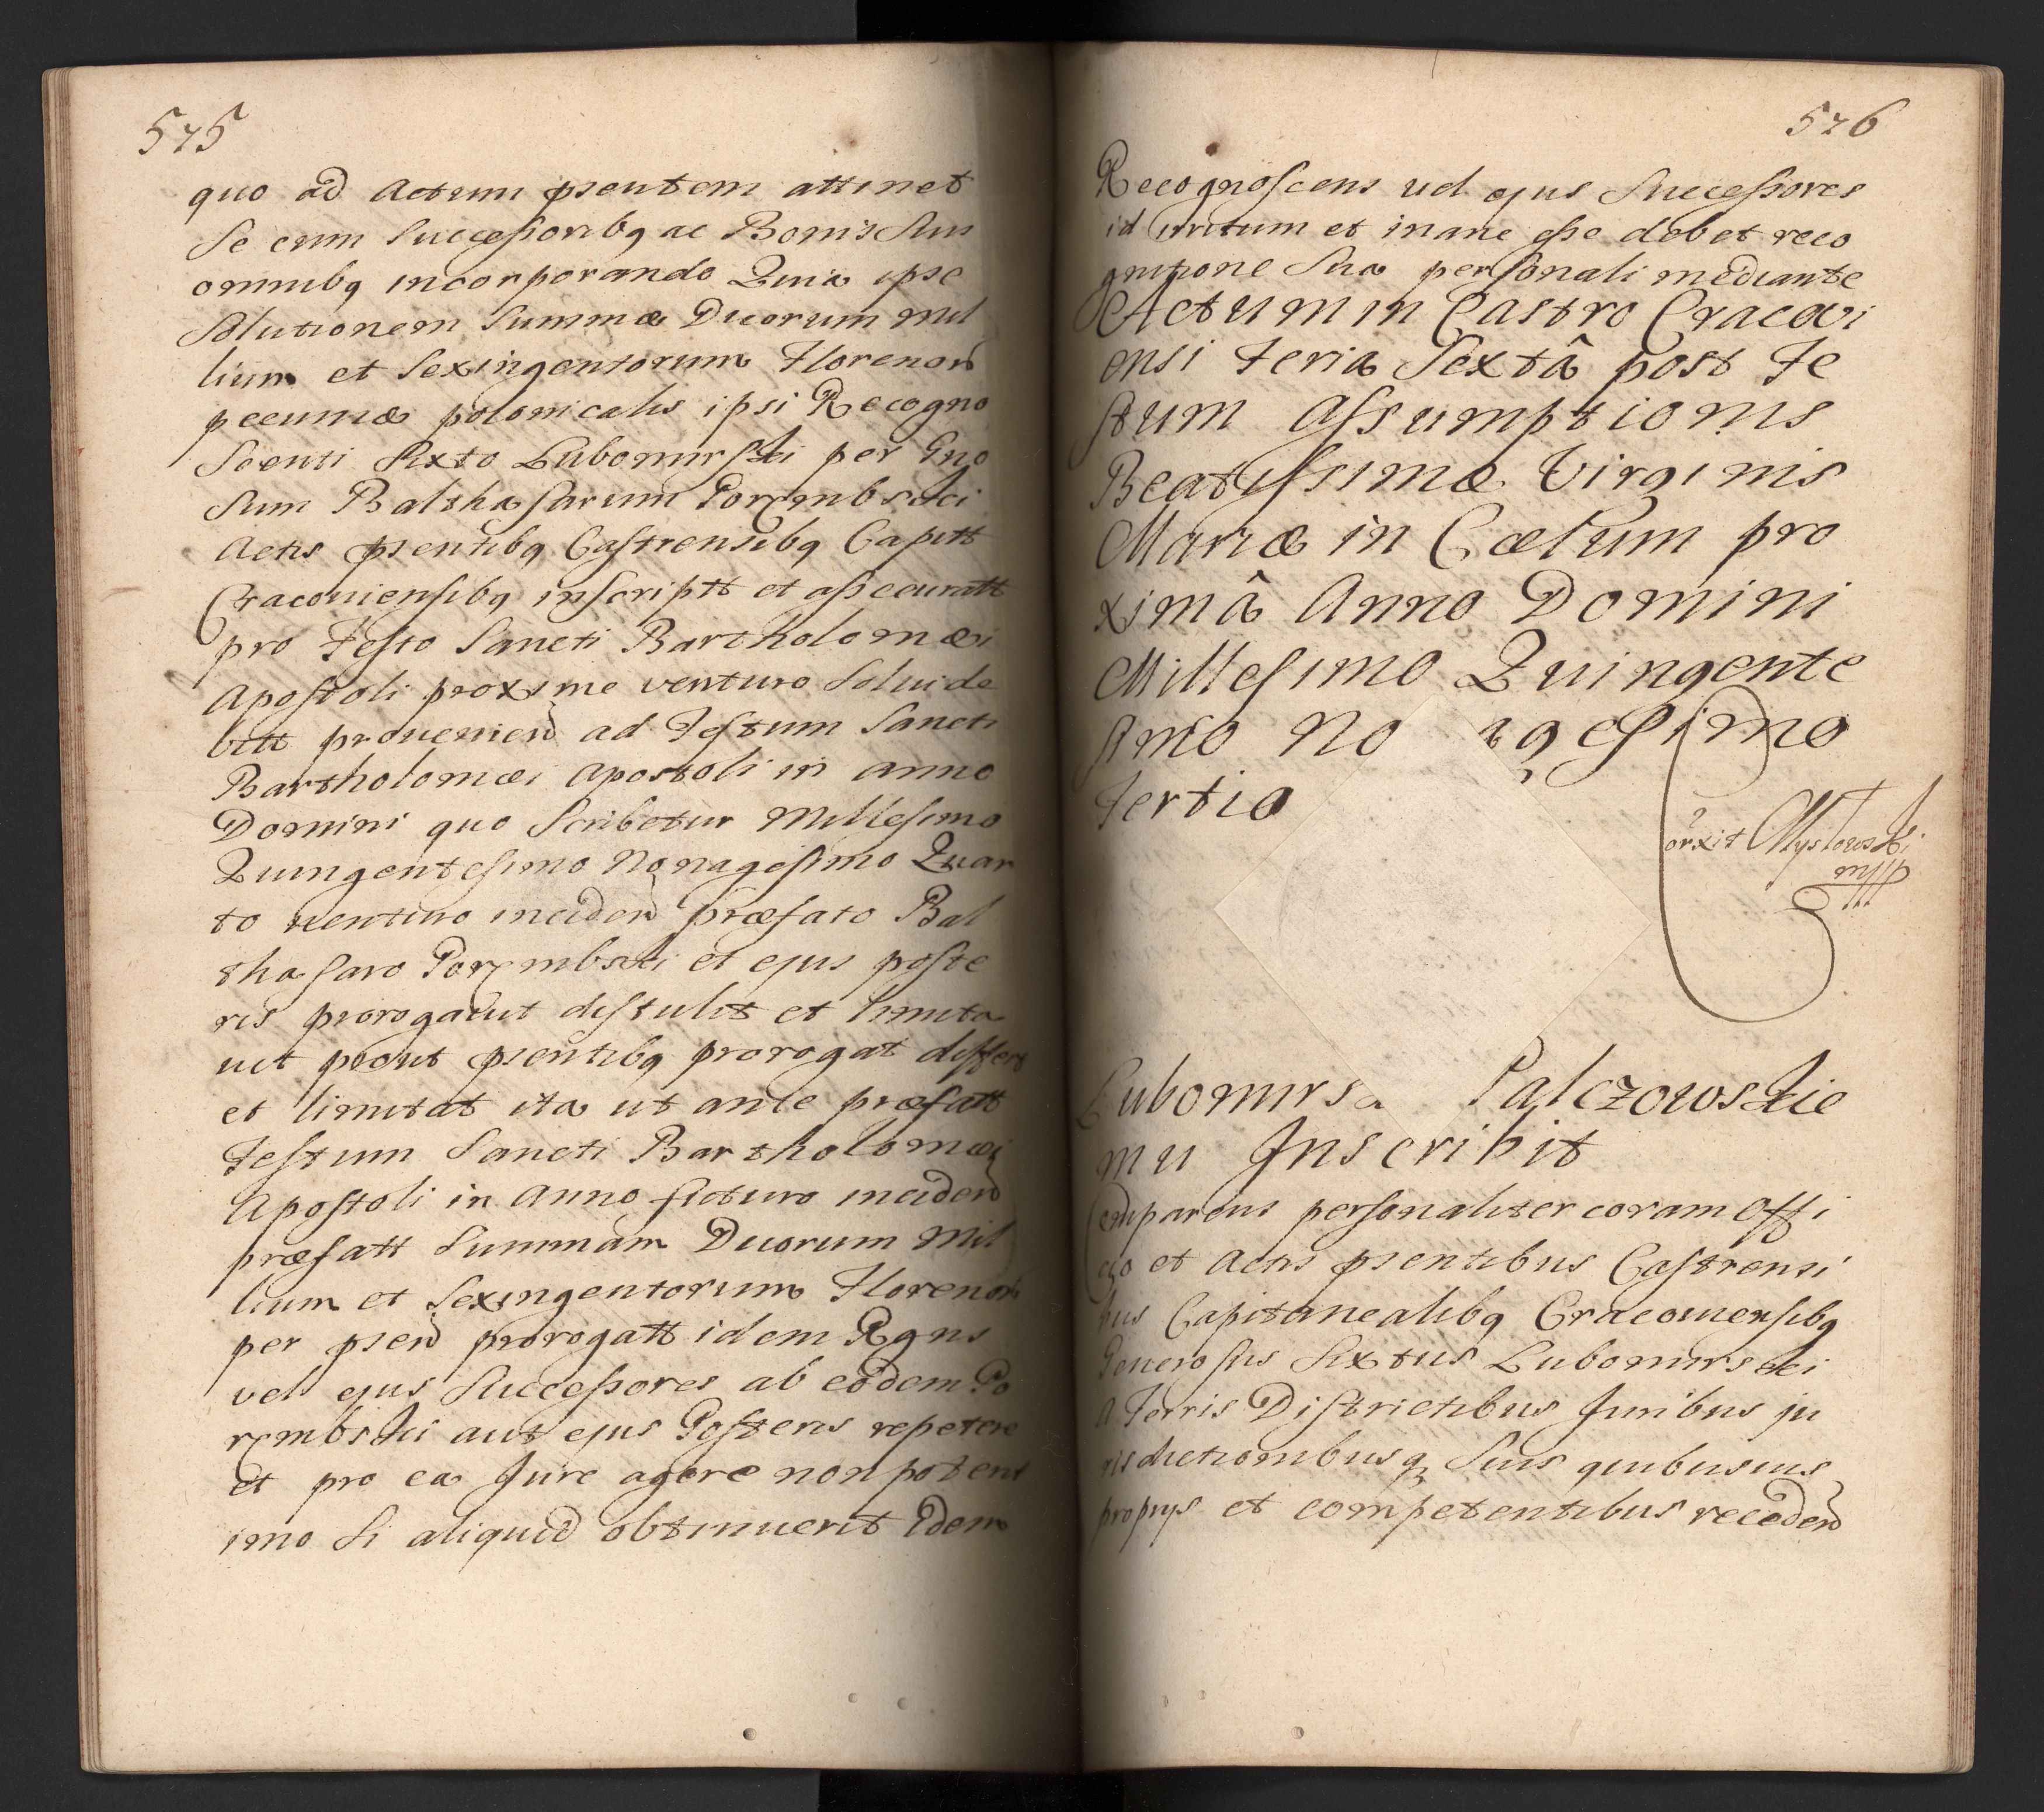 575
quo ad Actum pſentem attinet
Se cum Succeſsoribq ac Bonis Suis
omnibq incorporando Quia ipse
Solutionem Summæ Duorum Mil
lium et Sexingentorum Florenorũ
pecuniæ polonicalis ipsi Recogno
Scenti Sixto Lubomirſki per Gno
Sum Balthaſarum Porembski
Actis pſentibq Caſtrensibq Capitt
Cracouienſibq inſcriptt et aſsecuratt
pro Feſto Sancti Bartholomæi
Apoſtoli proxime venturo Solui de
bitt prouenieñ ad Feſtum Sancti
Bartholomæi Apostoli in anno
Domini quo Scribetur Milleſimo
Quingenteſimo Nonageſimo Quar
to uenturo incideñ præfato Bal
thaſaro Porembski et ejus poſte
ris prorogauit diſtulit et limita
uit prout pſentibq prorogat differt
et limitat ita ut ante præfatt
Feſtum Sancti Bartholomæi
Apoſtoli in Anno futuro incideñ
præfatt Summam Duorum Mil
lium et Sexingentorum Florenorũ
per pſeñ prorogatt idem Rgns
vel ejus Succeſsores ab eodem Po
rembski aut ejus Poſteris repetere
et pro ea Jure agere non poterit
imo Si aliquid obtinuerit Idem
576
Recognoſcens uel ejus Succeſsores
id irritum et inane eſse debet reco
gnitione Sua perſonali mediante
Actum in Castro Cracovi
ensi Feria Sextâ post Fe
ſtum Aſsumptionis
Beatiſsimæ Virginis
Mariæ in Cælum pro
ximâ Anno Domini
Milleſimo Quingente
ſimo No ageſimo
Tertio
orxit Mysłowski
mpp
Lubomirs a Palczowskie
mu Inscribit
Comparens perſonaliter coram Offi
cio et Actis pſentibus Caſtrensi
bus Capitanealibq Cracouienſibq
Generoſus Sixtus Lubomirski
A Terris Diſtrictibus Juribus ju
risdictionibusq Suis quibusuis
proprys et competentibus recedeñ